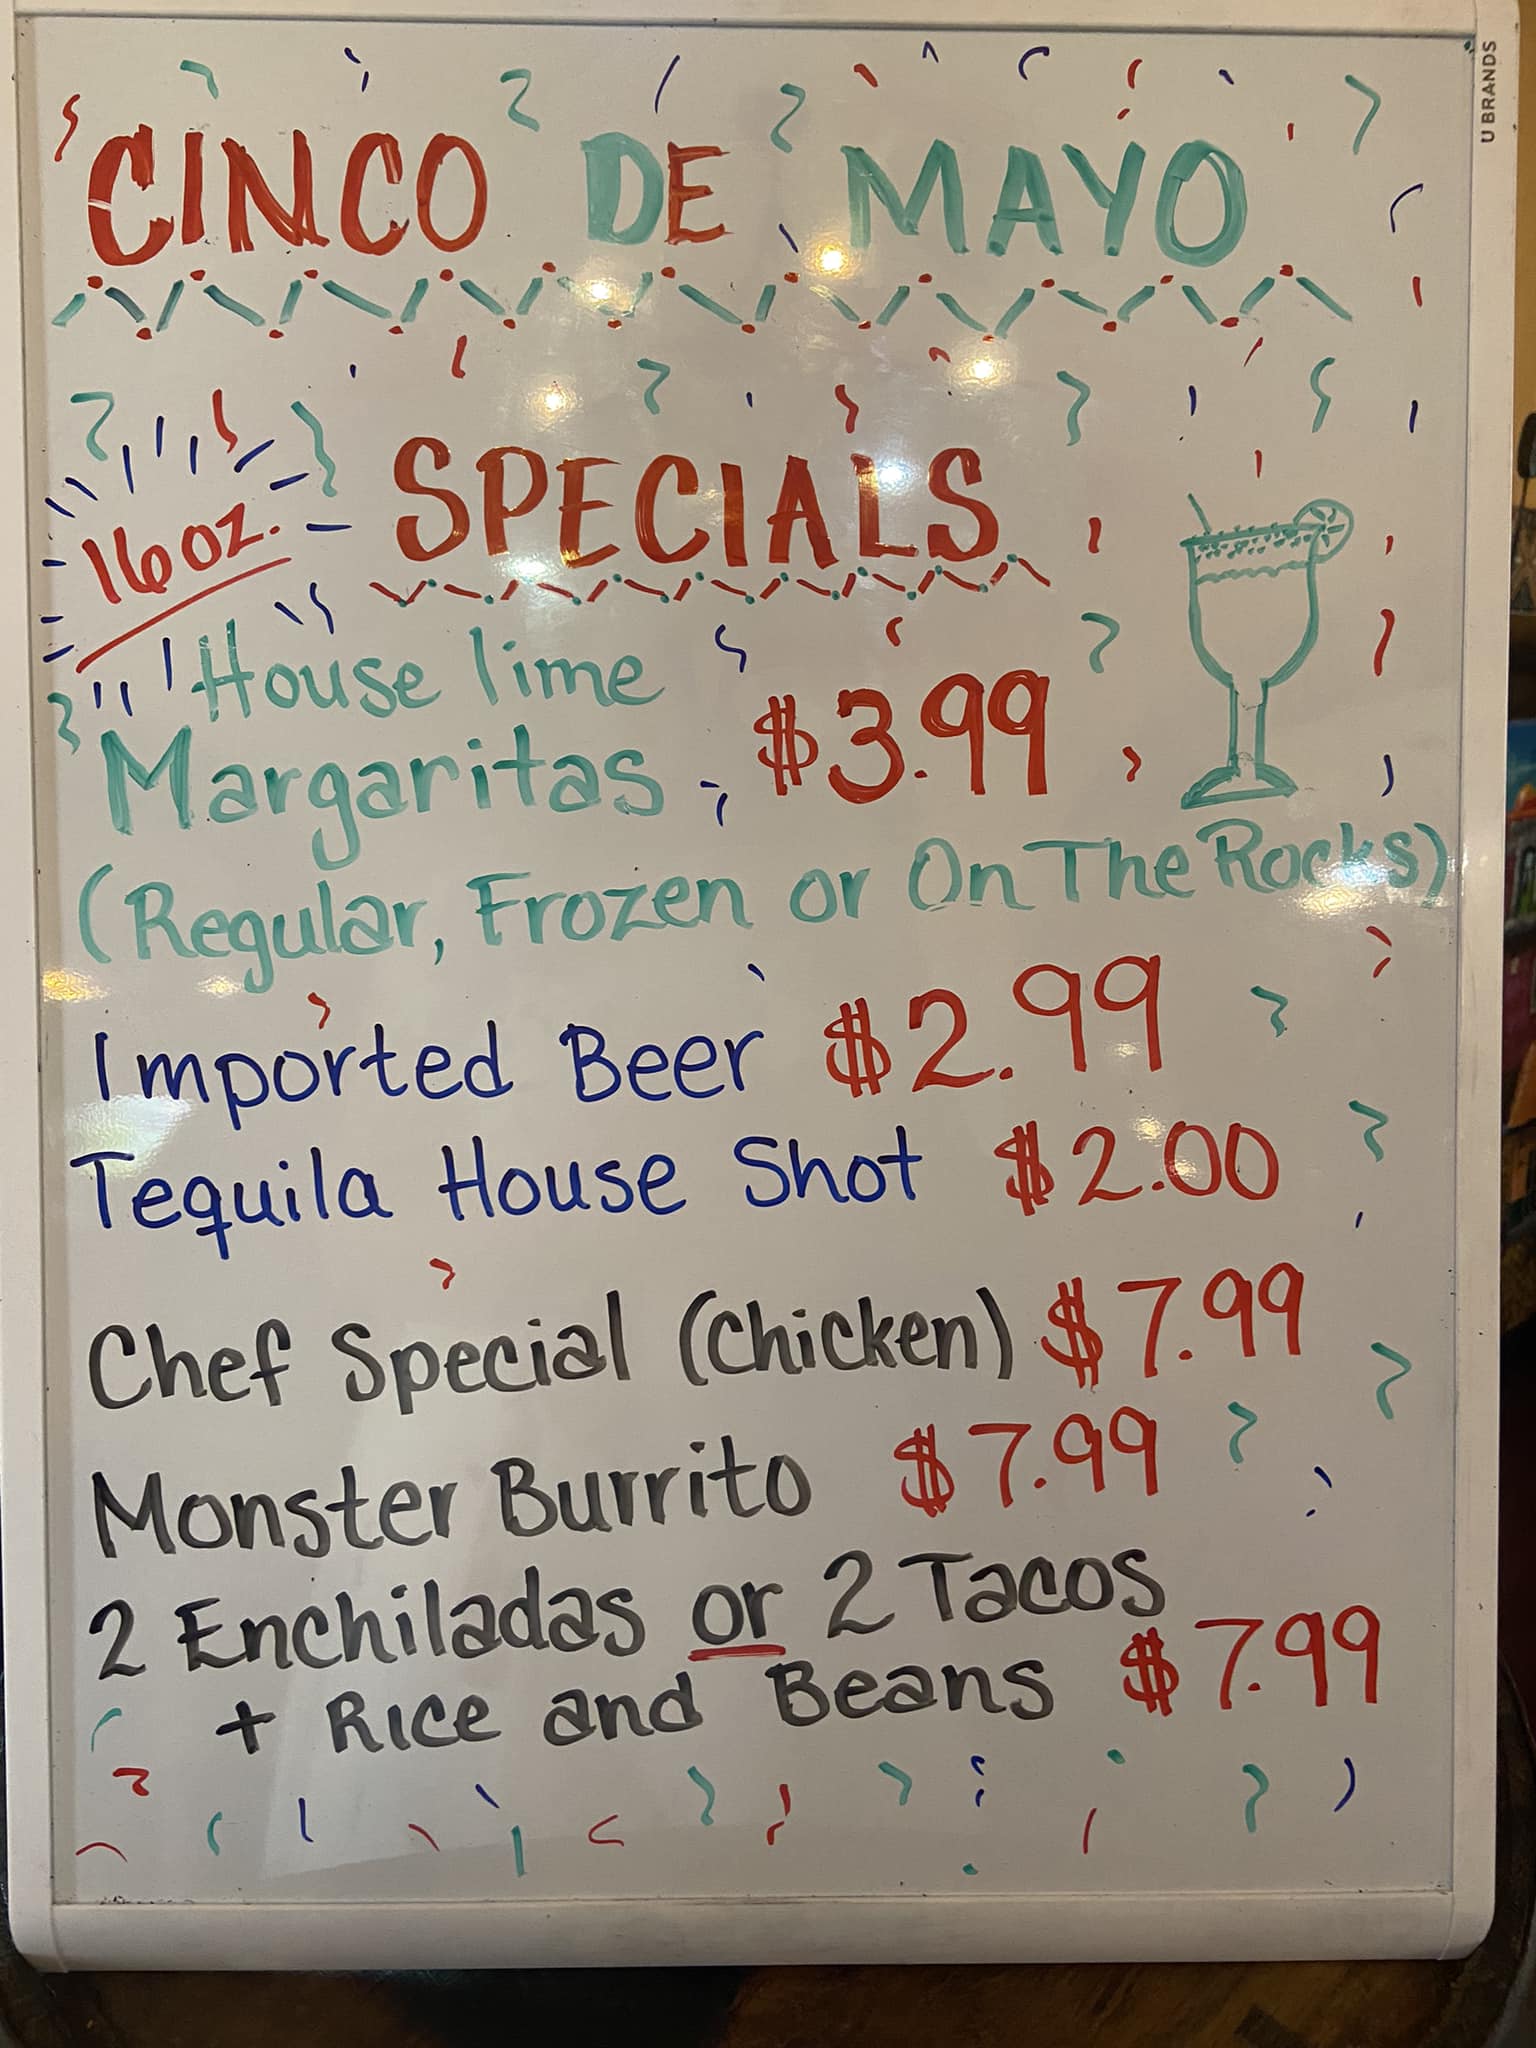 U BRANDS
CINCO DE MAYO
SPECIALS
16 oz.
House lime
Margaritas $3.99
(Regular, Frozen or On The Rocks)
Imported Beer $2.99
Tequila House Shot $2.00
Chef Special (Chicken) $7.99
Monster Burrito $7.99
2 Enchiladas or 2 Tacos
+ Rice and Beans $7.99